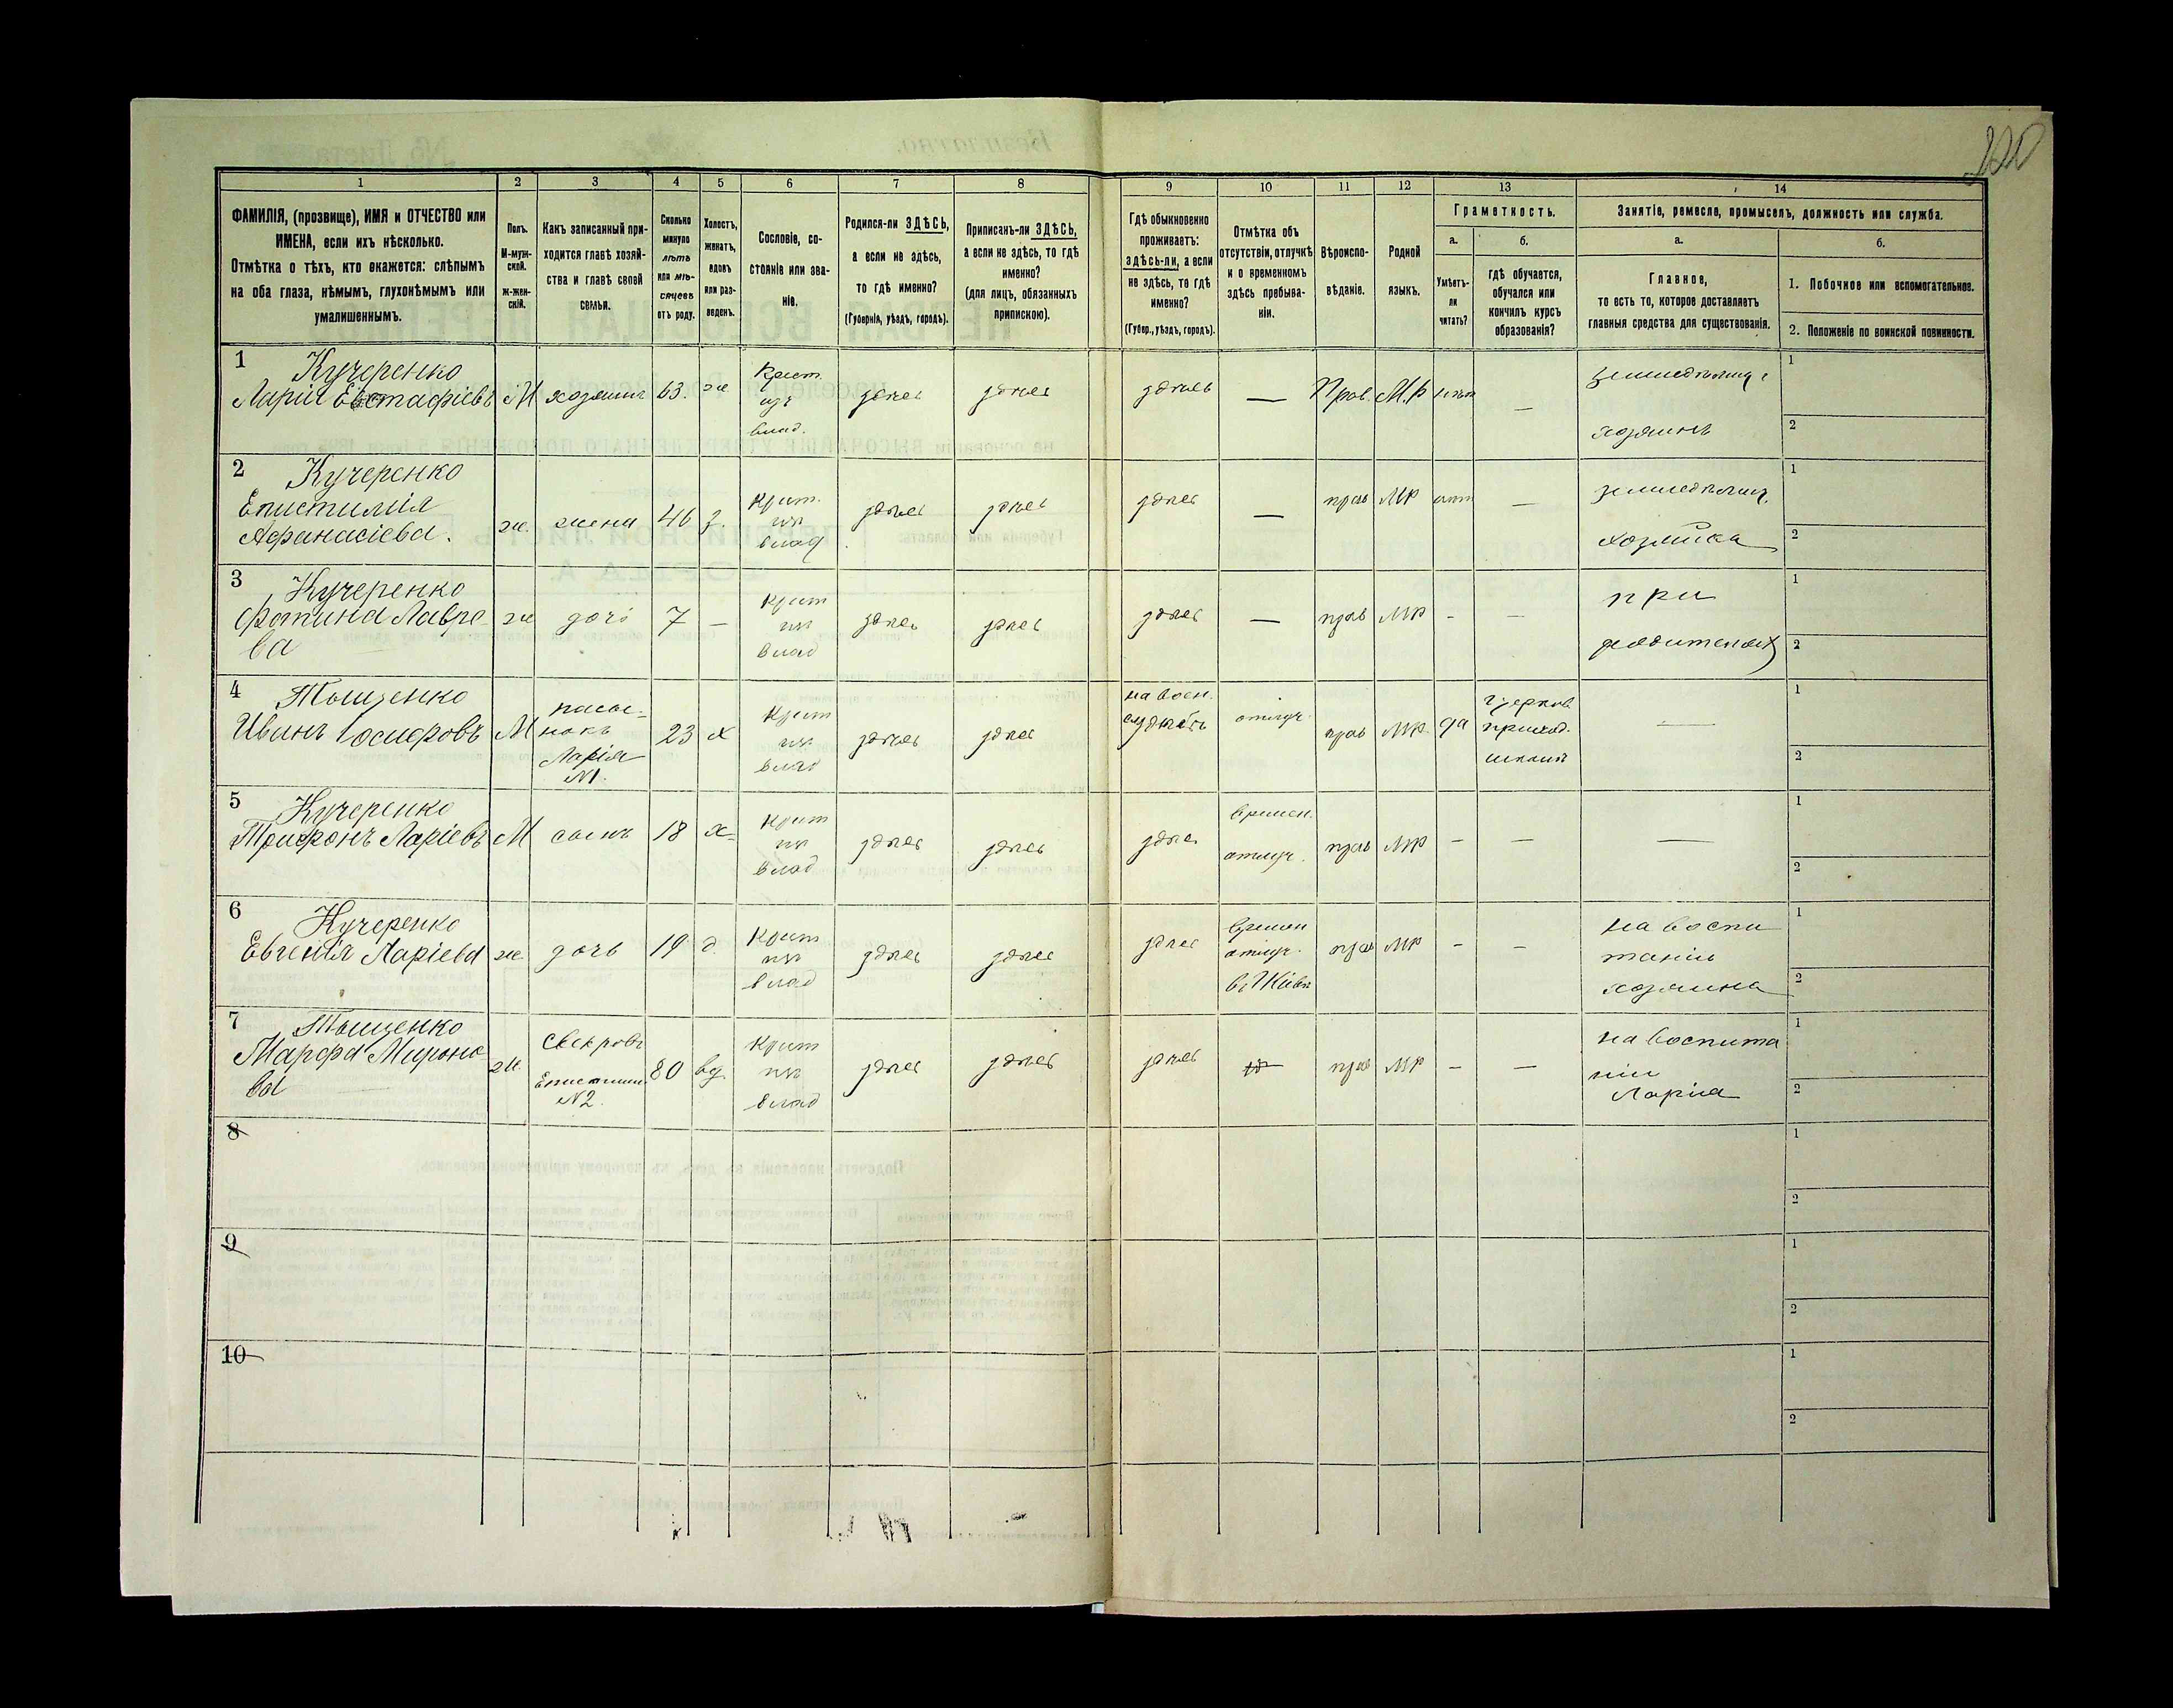 220
1
2
3
4
5
6
7
8
9
10
11
12
13
14
ФАМИЛІЯ, (прозвище), ИМЯ и ОТЧЕСТВО или
ИМЕНА, если ихъ нѣсколько.
Отмѣтка о тѣхъ, кто окажется: слѣпымъ
на оба глаза, нѣмымъ, глухонѣмымъ или
умалишеннымъ.
Полъ.
М-муж-
ской.
ж-жен-
скій.
Какъ записанный при-
ходится главѣ хозяй-
ства и главѣ своей
семьи.
Сколько
минуло
лѣтъ
или мѣ-
сяцевъ
отъ роду.
Холостъ,
женатъ,
вдовъ
или раз-
веденъ.
Сословіе, со-
стояніе или зва-
ніе.
Родился-ли ЗДѢСЬ,
а если не здѣсь,
то гдѣ именно?
(Губернія, уѣздъ, городъ).
Приписанъ-ли ЗДѢСЬ,
а если не здѣсь, то гдѣ
именно?
(для лицъ, обязанныхъ
припискою).
Гдѣ обыкновенно
проживаетъ:
здѣсь-ли, а если
не здѣсь, то гдѣ
именно?
(Губер., уѣздъ, городъ).
Отмѣтка объ
отсутствіи, отлучкѣ
и о временномъ
здѣсь пребыва-
ніи.
Вѣроиспо-
вѣданіе.
Родной
языкъ.
Грамотность.
а.
Умѣетъ-
ли
читать?
б.
гдѣ обучается,
обучался или
кончилъ курсъ
образованія?
Занятіе, ремесло, промыселъ, должность или служба.
а.
Главное,
то есть то, которое доставляетъ
главныя средства для существованія.
б.
1. Побочное или вспомогательное.
2. Положеніе по воинской повинности.
1
Кучеренко
Ларій Евстафіевъ
М
хозяинъ
63.
ж
Крест.
влад.
здѣсь
здѣсь
здѣсь
—
Прав.
М.Р
нѣт
—
хозяинъ
1
2
2
Кучеренко
Епистимія
Афанасіева.
ж.
жена
46
з.
Крест.
влад
здѣсь
здѣсь
здѣсь
—
прав
МР
—
хозяйка
1
2
3
Кучеренко
Фотина Лавре
ва
ж
дочь
7
—
Крест
влад
здѣсь
здѣсь
здѣсь
—
прав
МР
-
—
при
родителях
1
2
4
Тыщенко
Иванъ Іосифовъ
М
пасы-
нокъ
Ларія
N1.
23
х
Крест
влад
здѣсь
здѣсь
на воен.
службѣ
отлуч.
прав
МР.
да
церков
приход.
школѣ
—
1
2
5
Кучеренко
Трифонъ Ларіевъ
М
сынъ
18
х
Крест
влад
здѣсь
здѣсь
здѣс
времен.
отлуч.
прав
МР
—
—
—
1
2
6
Кучеренко
Евгенія Ларіева
ж
дочь
19
д.
Крест
влад
здѣсь
здѣсь
здѣсь
времен
отлуч.
въ Кіевѣ
прав
МР
-
—
на воспи
таніи
хозяина
1
2
7
Тыщенко
Марфа Мироно
ва
ж.
свекровь
Епистиміи
N2.
80
вд.
Крест
влад
здѣсь
здѣсь
здѣсь
прав
МР
-
—
на воспита
ніи
Ларія
1
2
8
1
2
9
1
2
10
1
2